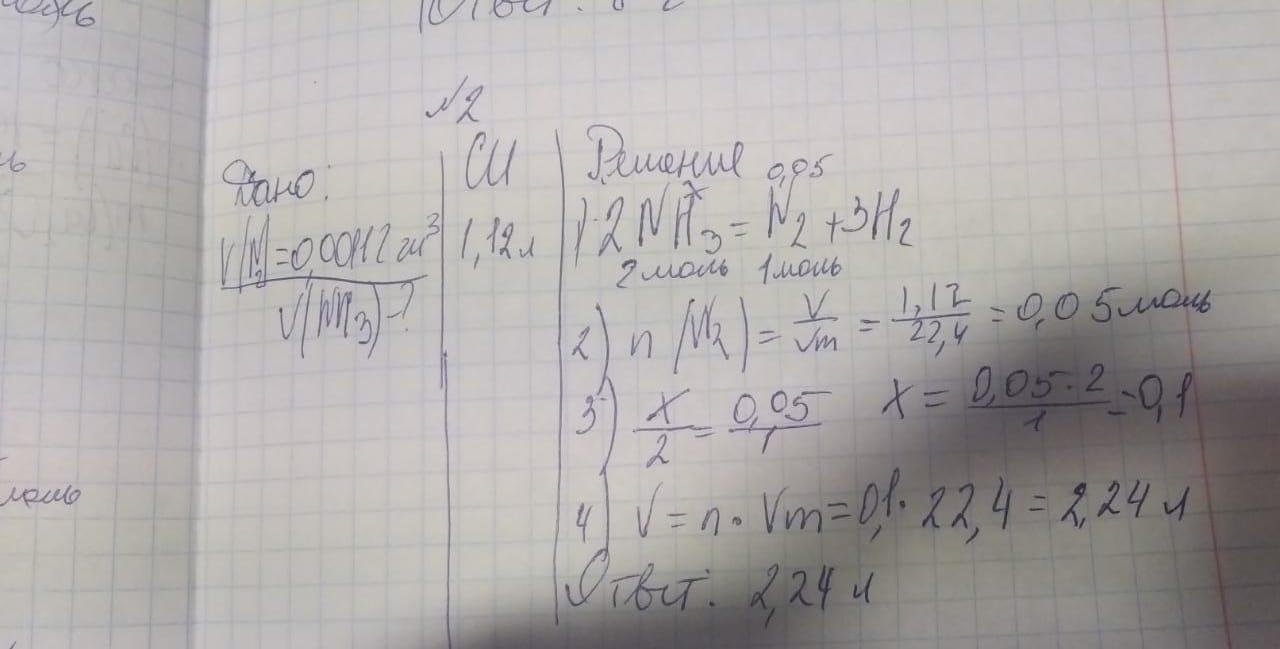 №2
Дано:
V(N2)=0,00112 м³
V(NH3)-?
СИ
1,12л
Решение
x 0,05
1) 2NH3 = N2 + 3H2
2моль 1моль
2) n(N2) = V/Vm = 1,12/22,4 = 0,05моль
3) x/2 = 0,05/1 x = 0,05·2/1 = 0,1
4) V = n · Vm = 0,1 · 22,4 = 2,24 л
Ответ: 2,24 л
моль